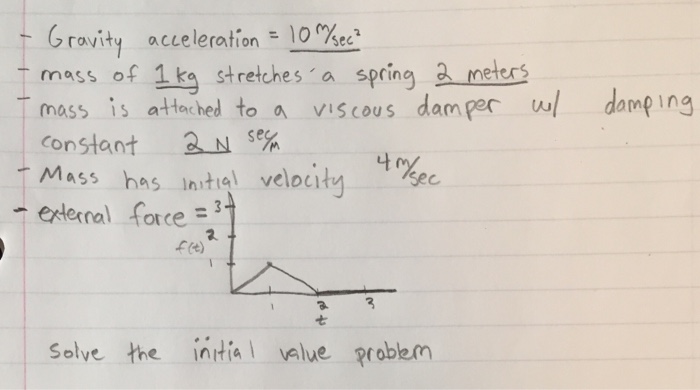 - Gravity acceleration = 10 m/sec²
- mass of 1 kg stretches a spring 2 meters
- mass is attached to a viscous damper w/ damping
constant 2 N sec/m
- Mass has initial velocity 4 m/sec
- external force = 3
f(t) 2
1
1 2 3
t
Solve the initial value problem